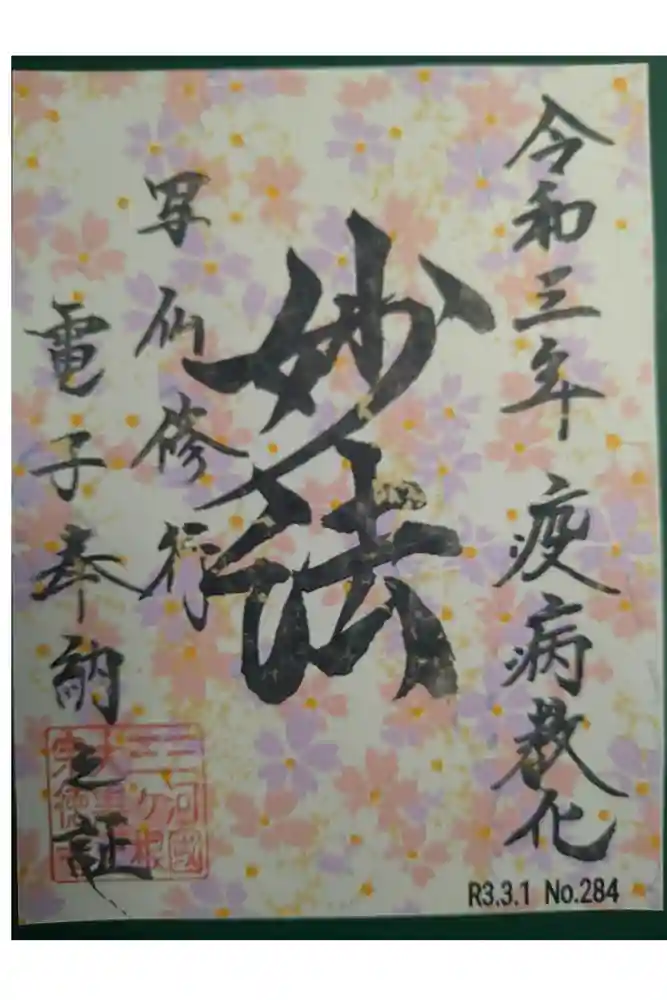 令和三年 疫病教化
妙法
写仏修行
電子奉納之証
R3.3.1 No.284